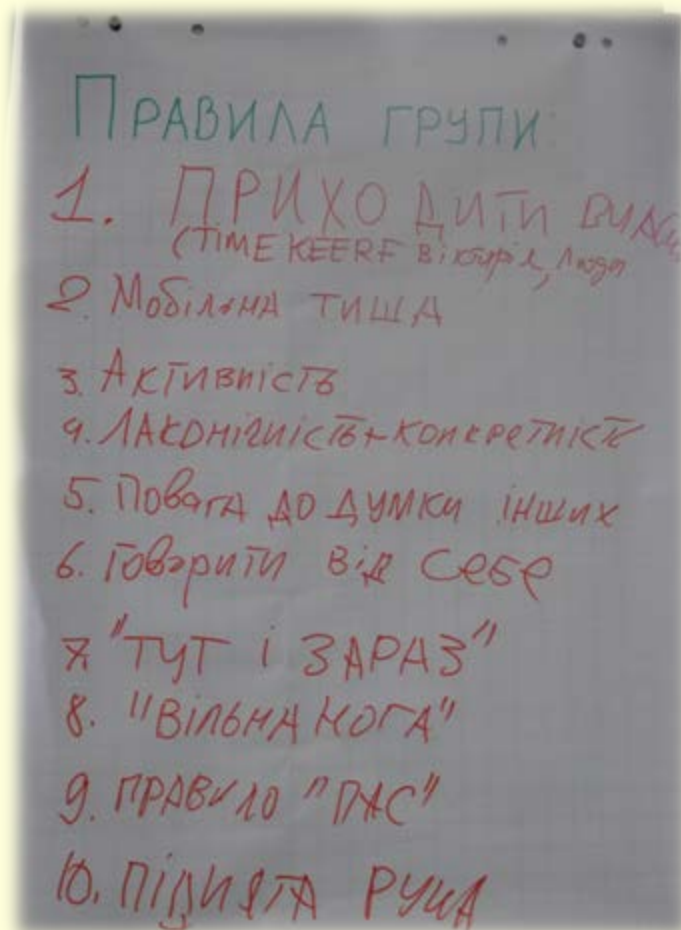 ПРАВИЛА ГРУПИ
1. ПРИХОДИТИ
(TIME KEEPE Вікторія, Люда
2. Мобільна ТИША
3. АКТИВНІСТЬ
4. ЛАКОНІЧНІСТЬ+КОНКРЕТНІСТЬ
5. Повага ДО ДУМКИ ІНШИХ
6. Говорити Від Себе
7. "ТУТ І ЗАРАЗ"
8. "ВІЛЬНА НОГА"
9. ПРАВИЛО "ПАС"
10. ПІДНЯТА РУКА